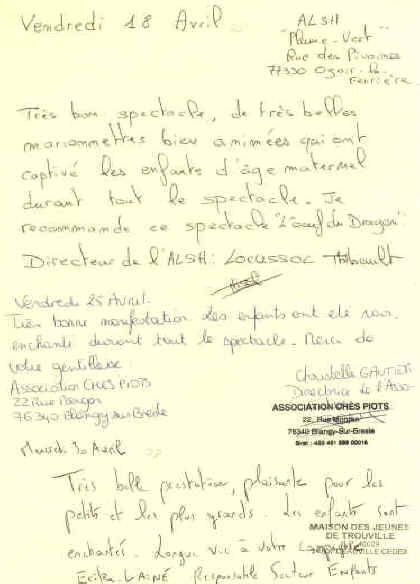 Vendredi 18 Avril
ALSH
"Plume-Vert"
Rue des Pivoines
77330 Ozoir-la-
Ferrière
Très bon spectacle, de très belles
marionnettes bien animées qui ont
captivé les enfants d'âge maternel
durant tout le spectacle. Je
recommande ce spectacle "L'oeuf du Dragon"
Directeur de l'ALSH: Locussol Thibault
Vendredi 25 Avril.
Très bonne manifestation les enfants ont été
enchanté durant tout le spectacle. Merci de
votre gentillesse
Association CHES PIOTS
22 Rue
76340 Blangy sur Bresle
Christelle GAUTIER
Directrice de l'Asso
ASSOCIATION CHÈS PIOTS
22, Rue
76340 Blangy-Sur-Bresle
Mercredi 30 Avril
Très belle prestation, plaisante pour les
petits et les plus grands. Les enfants sont
enchantés. Longue vie à votre
MAISON DES JEUNES
DE TROUVILLE
TROUVILLE CEDEX
LAINÉ Responsable Secteur Enfants